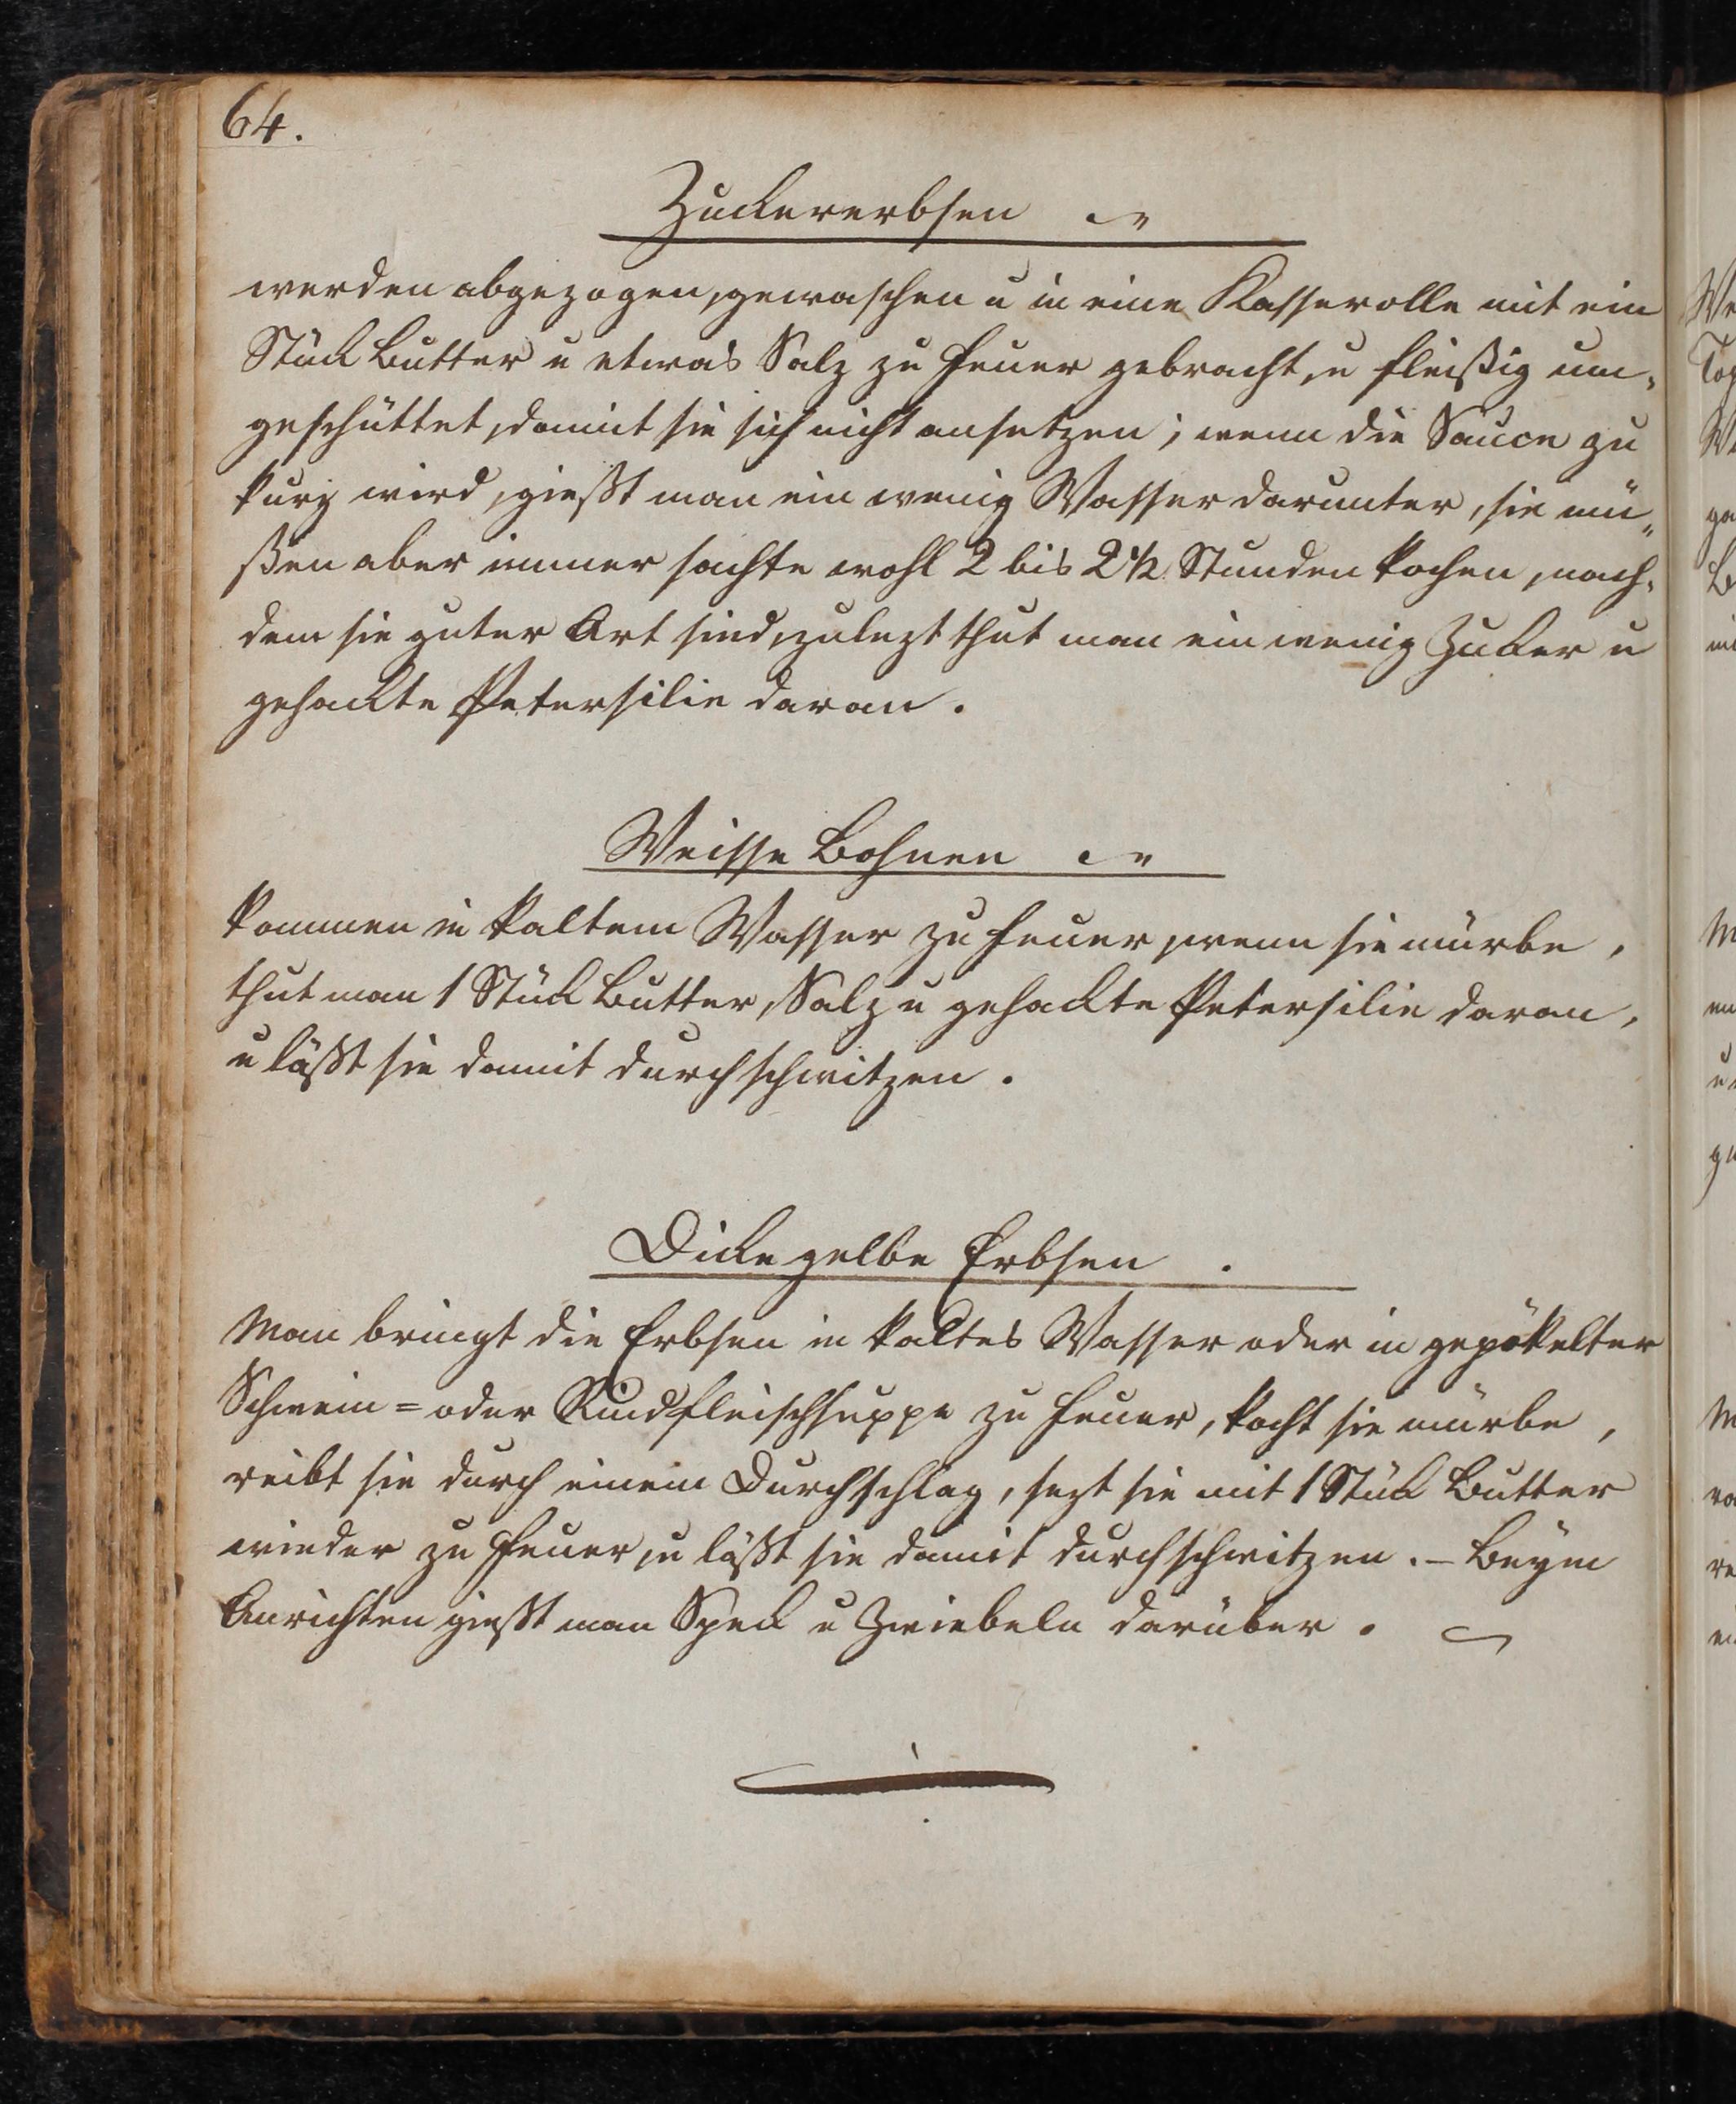 64.
Zuckererbsen
werden abgezogen, gewaschen u in eine Kasserolle mit ein
Stück Butter u etwas Salz zu Feuer gebracht, u fleißig um-
geschüttet, damit sie sich nicht ansetzen; wenn die Sauce zu
kurz wird, gießt man ein wenig Wasser darunter, sie mü-
ßen aber immer sachte wohl 2 bis 2 1/2 Stunden kochen, nach-
dem sie guter Art sind, zulezt thut man ein wenig Zucker u
gehackte Petersilie daran.
Weisse Bohnen
kommen in kaltem Wasser zu Feuer, wenn sie mürbe,
thut man 1 Stück Butter, Salz u gehackte Petersilie daran,
u läßt sie damit durchschwitzen.
Dicke gelbe Erbsen.
Man bringt die Erbsen in kaltes Wasser oder in gepökelter
Schwein= oder Rindfleischsuppe zu Feuer, kocht sie mürbe,
reibt sie durch einem Durchschlag, sezt sie mit 1 Stück Butter
wieder zu Feuer, u läßt sie damit durchschwitzen. - Beym
Anrichten gießt man Speck u Zwiebeln darüber.